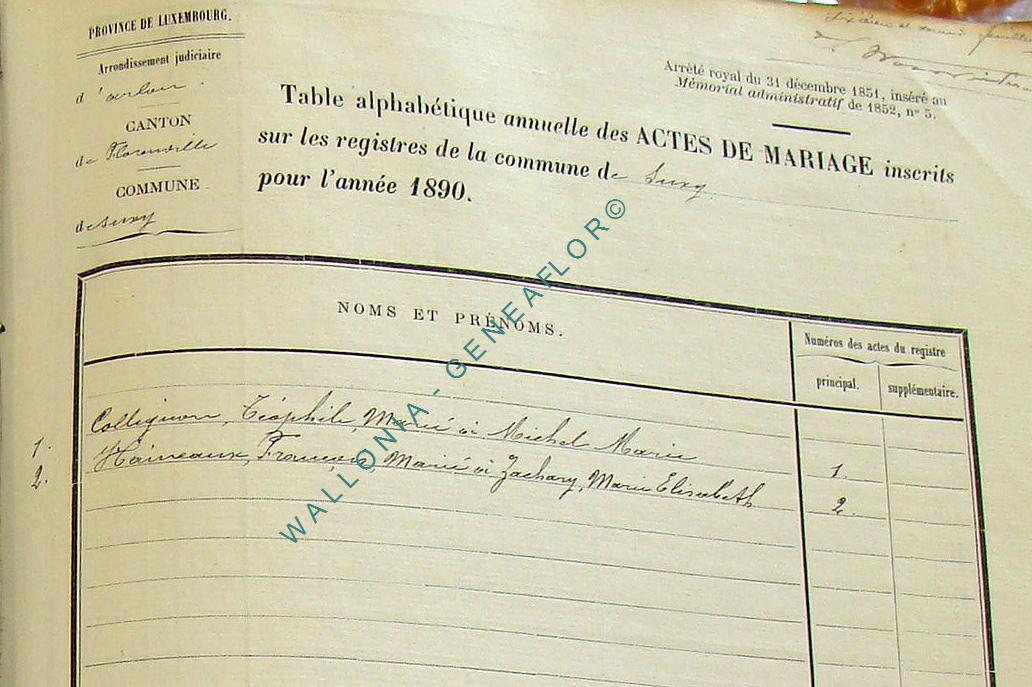 PROVINCE DE LUXEMBOURG.
Arrondissement judiciaire
d'arlon
CANTON
de Florenville
COMMUNE
de Suxy
Arrêté royal du 31 décembre 1851, inséré au
Mémorial administratif de 1852, n° 5.
Table alphabétique annuelle des ACTES DE MARIAGE inscrits
sur les registres de la commune de Suxy
pour l'année 1890.
NOMS ET PRÉNOMS.
Numéros des actes du registre
principal. supplémentaire.
1. Collignon, Téophile, Marié à Michel Marie 1.
2. Haineaux, François, Marié à Zachary, Marie Elisabeth 2.
WALLONIA - GENEAFLOR©